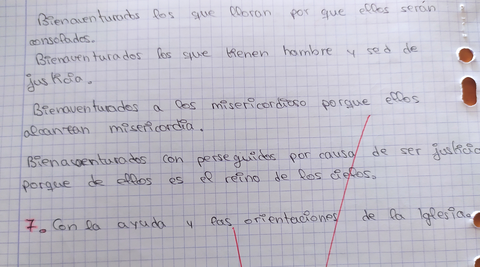 Bienaventurados los que lloran por que ellos serán
consolados.
Bienaventurados los que tienen hambre y sed de
justicia.
Bienaventurados a los misericordioso porque ellos
alcantan misericordia.
Bienaventurados con perseguidos por causa de ser justicia
porque de ellos es el reino de los cielos.
7. Con la ayuda y las orientaciones de la Iglesia.